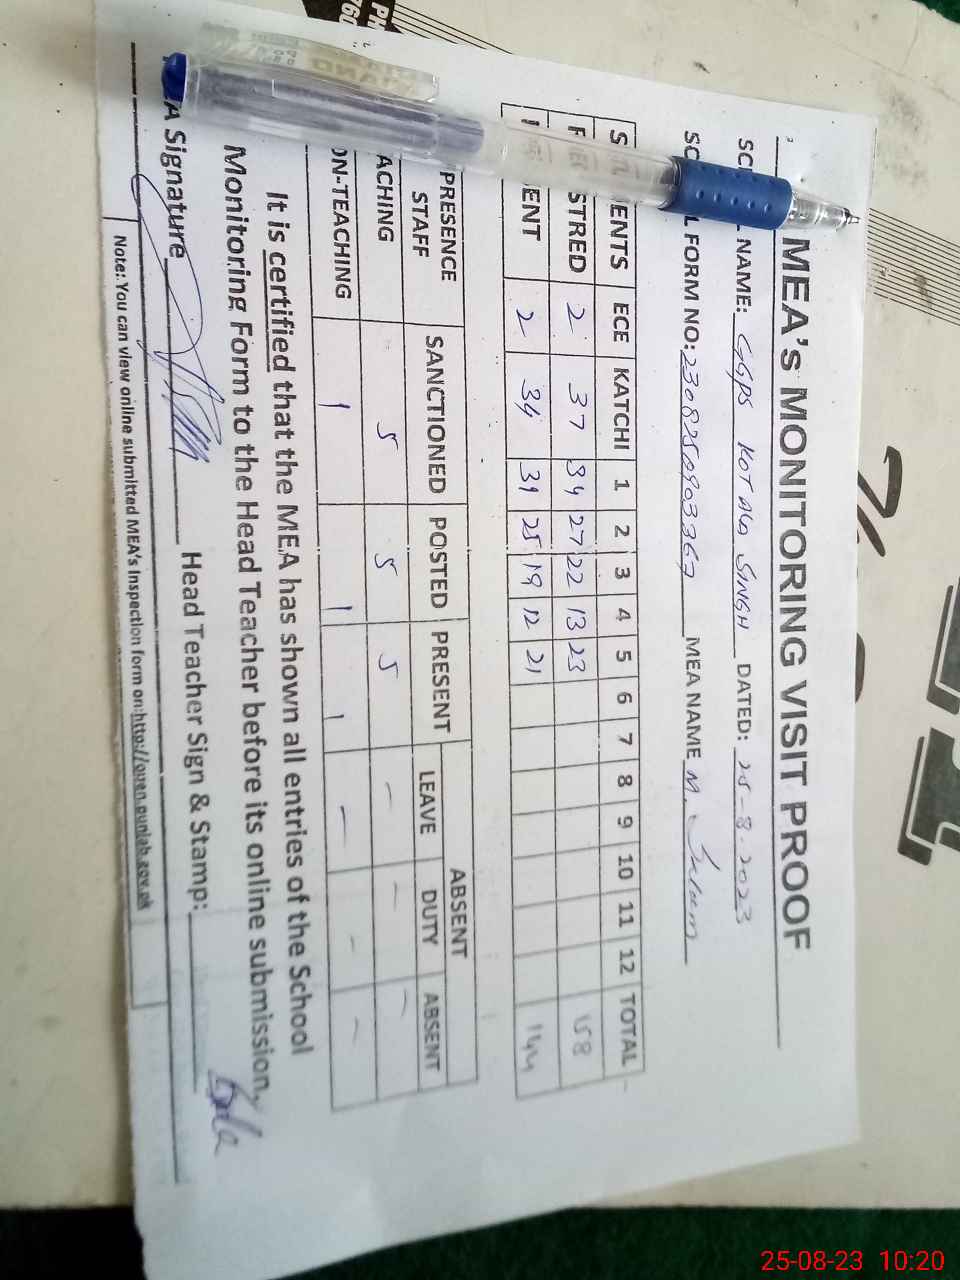 MEA's MONITORING VISIT PROOF
NAME: GGPS KOT ALA SINGH DATED: 25-8-2023
FORM NO: MEA NAME M. Saleem
ENTS ECE KATCHI 1 2 3 4 5 6 7 8 9 10 11 12 TOTAL
STRED 2 37 34 27 22 13 23 158
ENT 2 34 31 25 19 12 21 144
PRESENCE SANCTIONED POSTED PRESENT ABSENT
STAFF LEAVE DUTY ABSENT
ACHING 5 5 5 - - -
ON-TEACHING 1 1 1 - - -
It is certified that the MEA has shown all entries of the School
Monitoring Form to the Head Teacher before its online submission.
A Signature Head Teacher Sign & Stamp:
Note: You can view online submitted MEA's Inspection form on:http://open.punjab.gov.pk
25-08-23 10:20